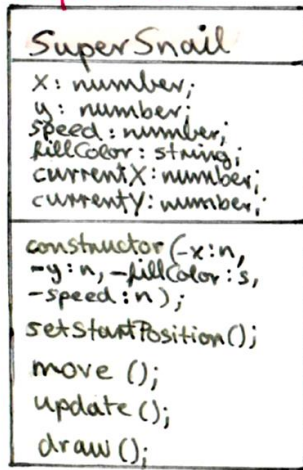 SuperSnail
x: number;
y: number;
speed: number;
fillColor: string;
currentX: number;
currentY: number;
constructor(-x:n,
-y:n, -fillColor:s,
-speed:n);
setStartPosition();
move ();
update();
draw();